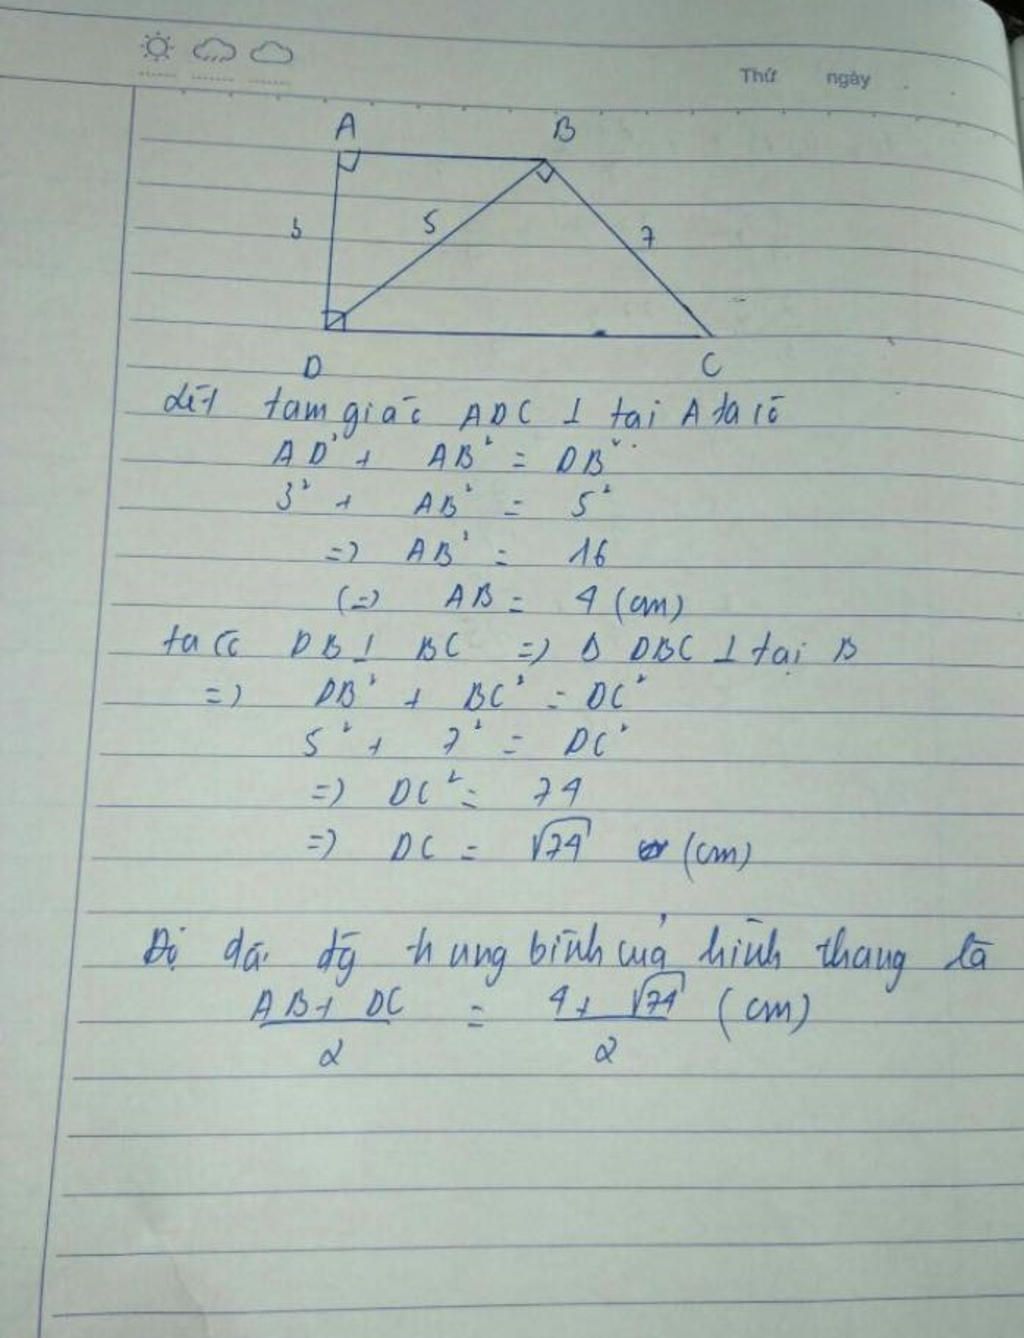 Thứ ngày
A B
3 5 7
D C
Xét tam giác ADC ⊥ tại A ta có
AD² + AB² = DB²
3² + AB² = 5²
=> AB² = 16
(=) AB = 4 (cm)
ta có DB ⊥ BC => Δ DBC ⊥ tại B
=> DB² + BC² = DC²
5² + 7² = DC²
=> DC² = 74
=> DC = √74 (cm)
Độ dài đg trung bình của hình thang là
AB + DC / 2 = 4 + √74 / 2 (cm)